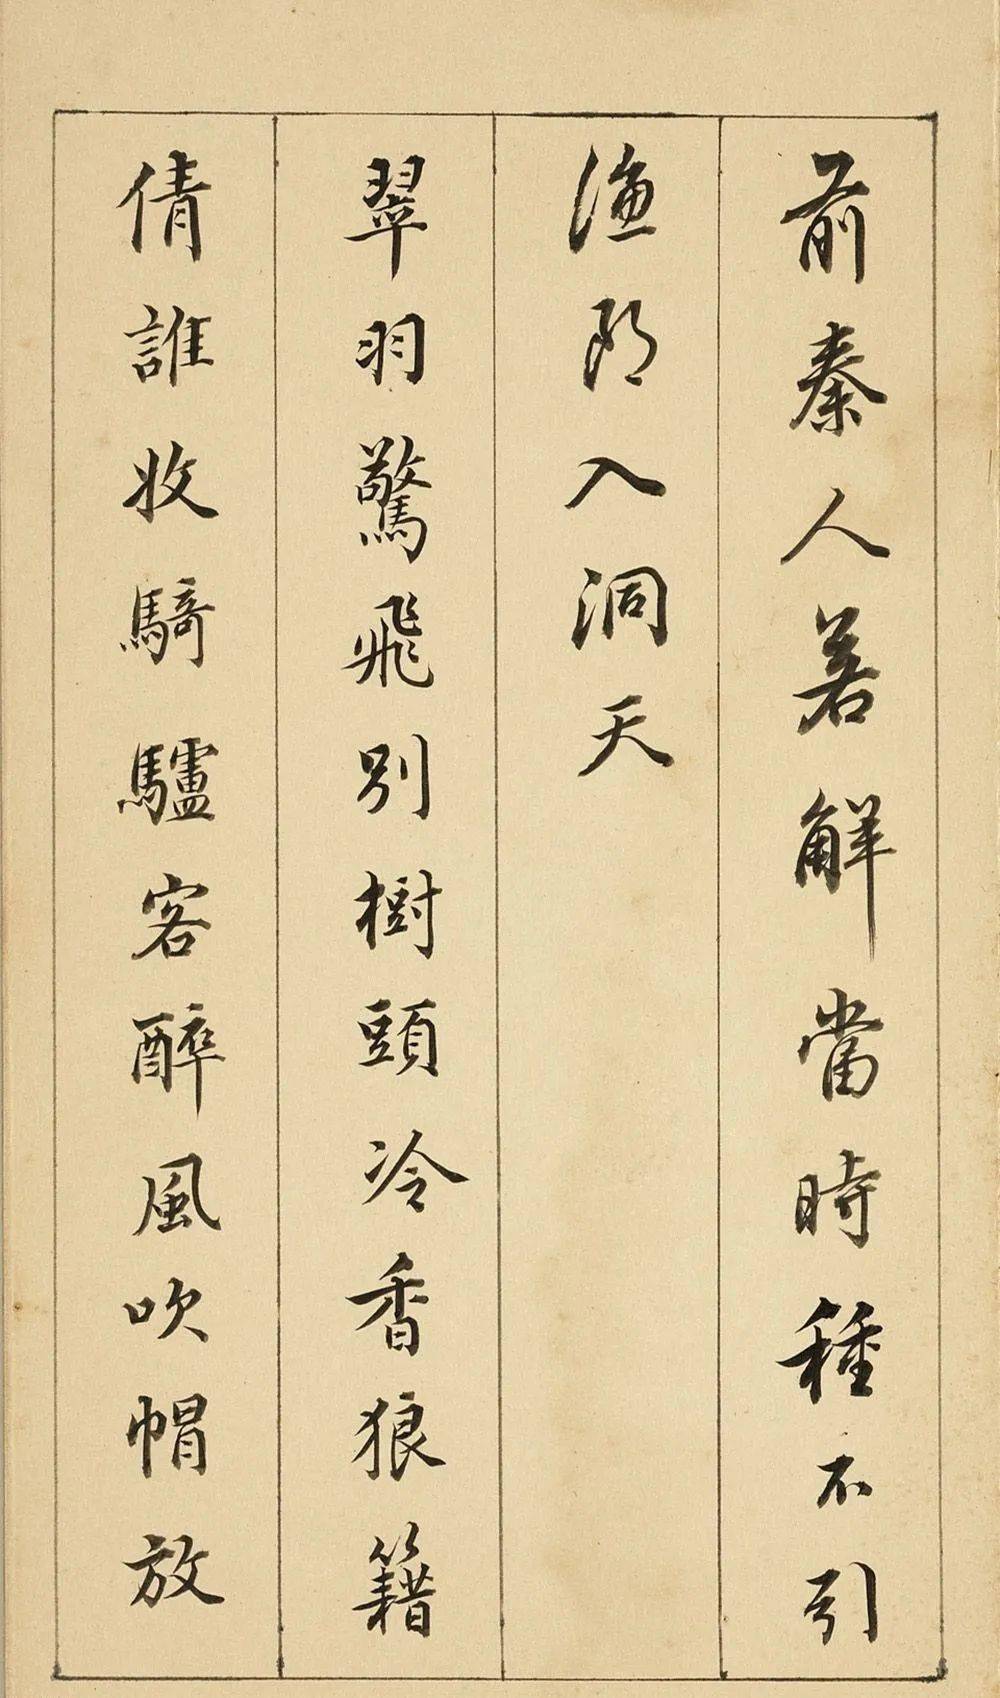 前秦人若解當時種不引
漁郎入洞天
翠羽驚飛別樹頭冷香狼籍
倩誰收騎驢客醉風吹帽放